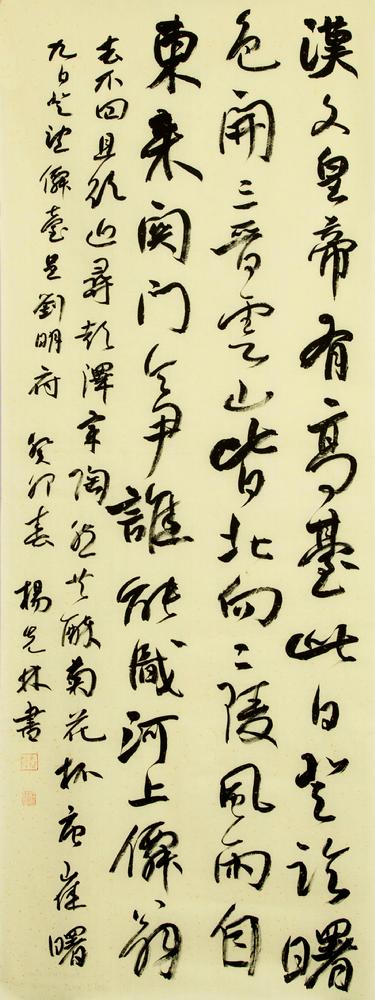 漢文皇帝有高臺此日登臨曙
色開三晉雲山皆北向二陵風雨自
東来関門令尹誰能識河上僊翁
去不回且欲近尋彭澤宰陶然共醉菊花杯唐崔曙
九日登望僊臺呈劉明府 癸卯春 楊光林書